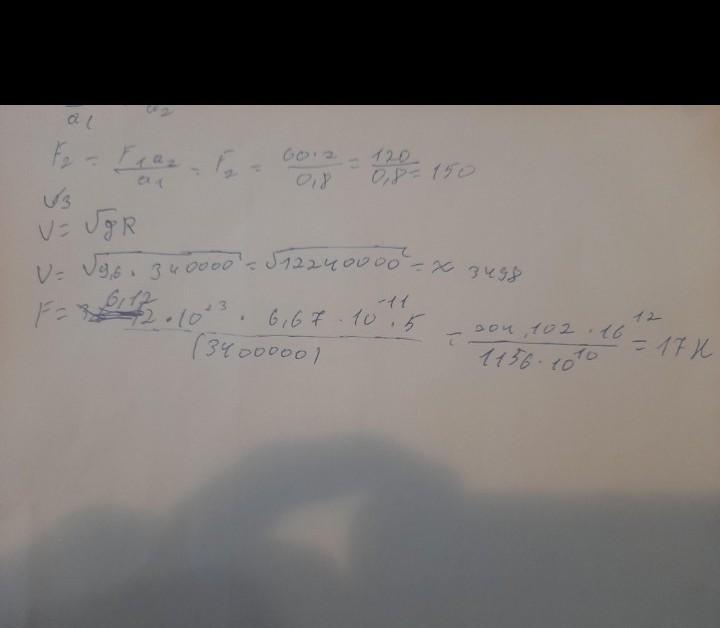 a₁ a₂
F₂ = F₁a₂/a₁ = F₂ = 60·2/0,8 = 120/0,8 = 150
√3
V = √gR
V = √9,6 · 340000 = √12240000 = x 3498
F = 6,12 · 10²³ · 6,67 · 10⁻¹¹ · 5 / (3400000) = 204,102 · 10¹² / 1156 · 10¹⁰ = 17 H